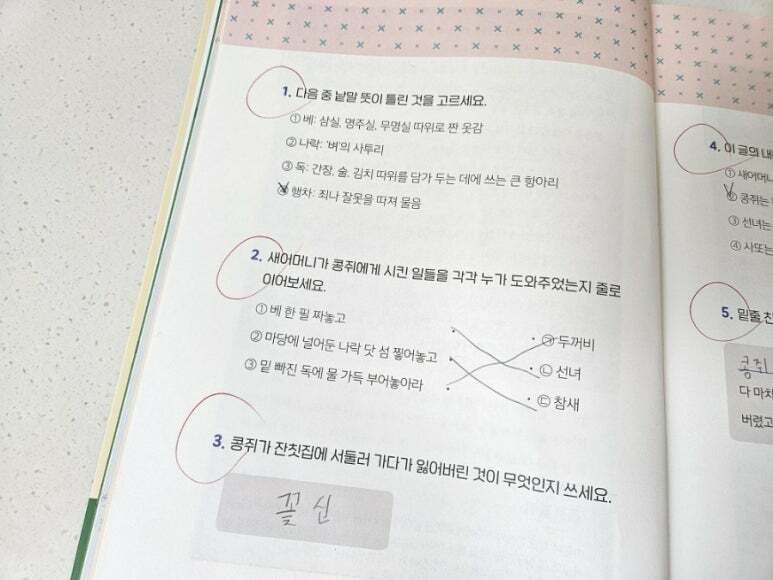 1. 다음 중 낱말 뜻이 틀린 것을 고르세요.
① 베: 삼실, 명주실, 무명실 따위로 짠 옷감
② 나락: '벼'의 사투리
③ 독: 간장, 술, 김치 따위를 담가 두는 데에 쓰는 큰 항아리
④ 행차: 죄나 잘못을 따져 물음
2. 새어머니가 콩쥐에게 시킨 일들을 각각 누가 도와주었는지 줄로
이어보세요.
① 베 한 필 짜놓고
② 마당에 널어둔 나락 닷 섬 찧어놓고
③ 밑 빠진 독에 물 가득 부어놓아라
㉠ 두꺼비
㉡ 선녀
㉢ 참새
3. 콩쥐가 잔칫집에 서둘러 가다가 잃어버린 것이 무엇인지 쓰세요.
꽃 신
4. 이 글의
① 새어머니
② 콩쥐는
③ 선녀는
④ 사또는
5. 밑줄 친
콩쥐
다 마치
버렸고